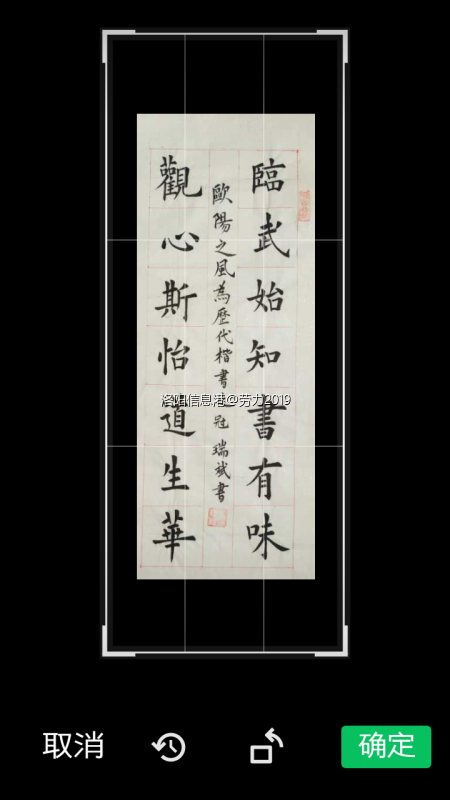 臨武始知書有味
歐陽之風為歷代楷書之冠 瑞斌書
觀心斯怡道生華
洛阳信息港@劳力2019
取消
确定